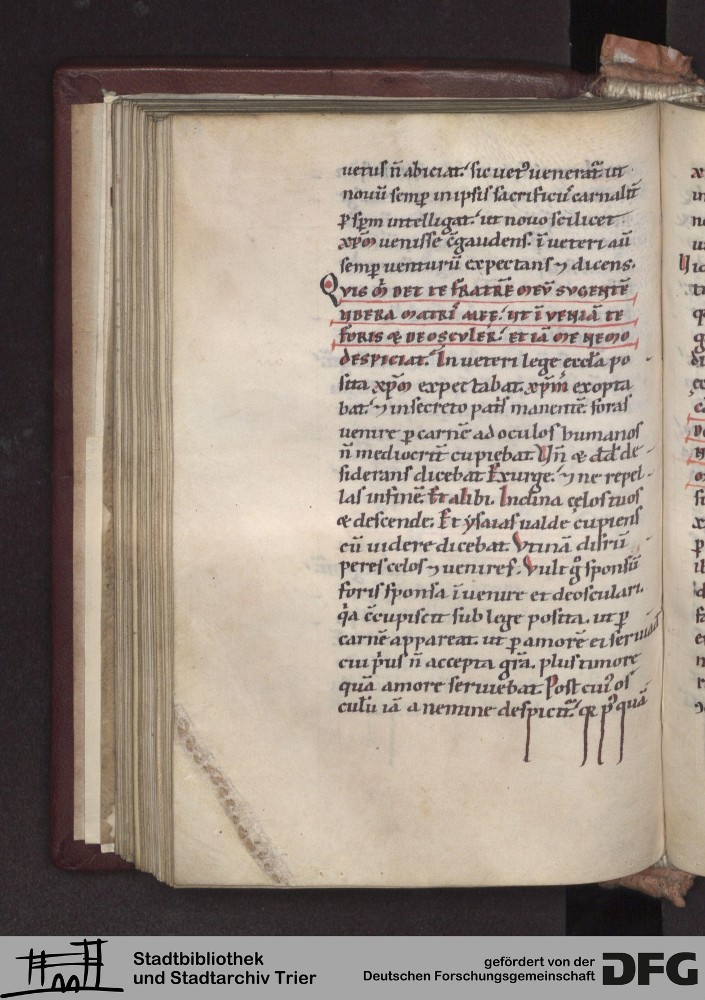 uetus n̄ abiciat. sic uet᷒ uenerat᷑ ut
nouū semp̱ in ipsis sacrificiū carnalit̄
p̱ sp̄m intelligat. ut nouo scilicet
xp̄m uenisse c̄gaudens. ī ueteri aū
semp̱ uenturū expectans ⁊ dicens.
QVIS M̊ DET TE FRATRĒ MEV̄ SVGENTĒ
VBERA MATRI MEE. VT ĪVENIĀ TE
FORIS & DEOSCVLER. ET IĀ ME NEMO
DESPICIAT. In ueteri lege eccl̄a po
sita xp̄m expectabat. xp̄m exopta
bat. ⁊ in secreto pat̄s manentē. foras
uenire p̱ carnē ad oculos humanos
n̄ mediocrit̄ cupiebat. Vn̄ & d̄d de
siderans dicebat Exurge. ⁊ ne repel
las in finē. Et alibi. Inclina cęlos tuos
& descende. Et ysaias ualde cupiens
eū uidere dicebat. Vtinā disrū
peres celos ⁊ uenires. Vult g̊ sponsū
foris sponsa īuenire et deosculari.
q̇a c̄cupiscit sub lege posita. ut p̱
carnē appareat. ut p̱ amorē ei seruiat
cui p̍us n̄ accepta gr̄a. plus timore
quā amore seruiebat. Post cui᷒ os
culū iā a nemine despicit᷑. & p᷒quā
Stadtbibliothek
und Stadtarchiv Trier
gefördert von der
Deutschen Forschungsgemeinschaft
DFG